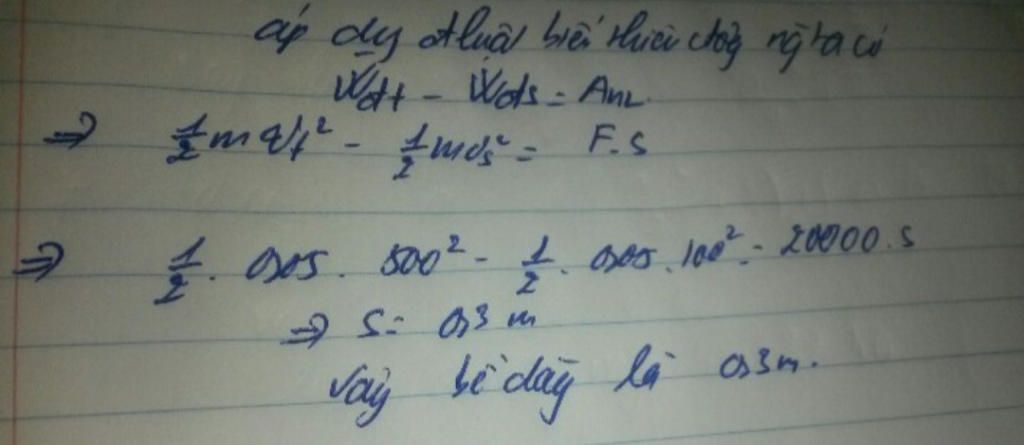 áp dụ thuật biến thiên động ng ta có
Wđt - Wđs = Anl
=> 1/2 m vt² - 1/2 mvs² = F.S
=> 1/2 . 0,05 . 500² - 1/2 . 0,05 . 100² = 20000.s
=> s = 0,3 m
vậy bề dày là 0,3m.